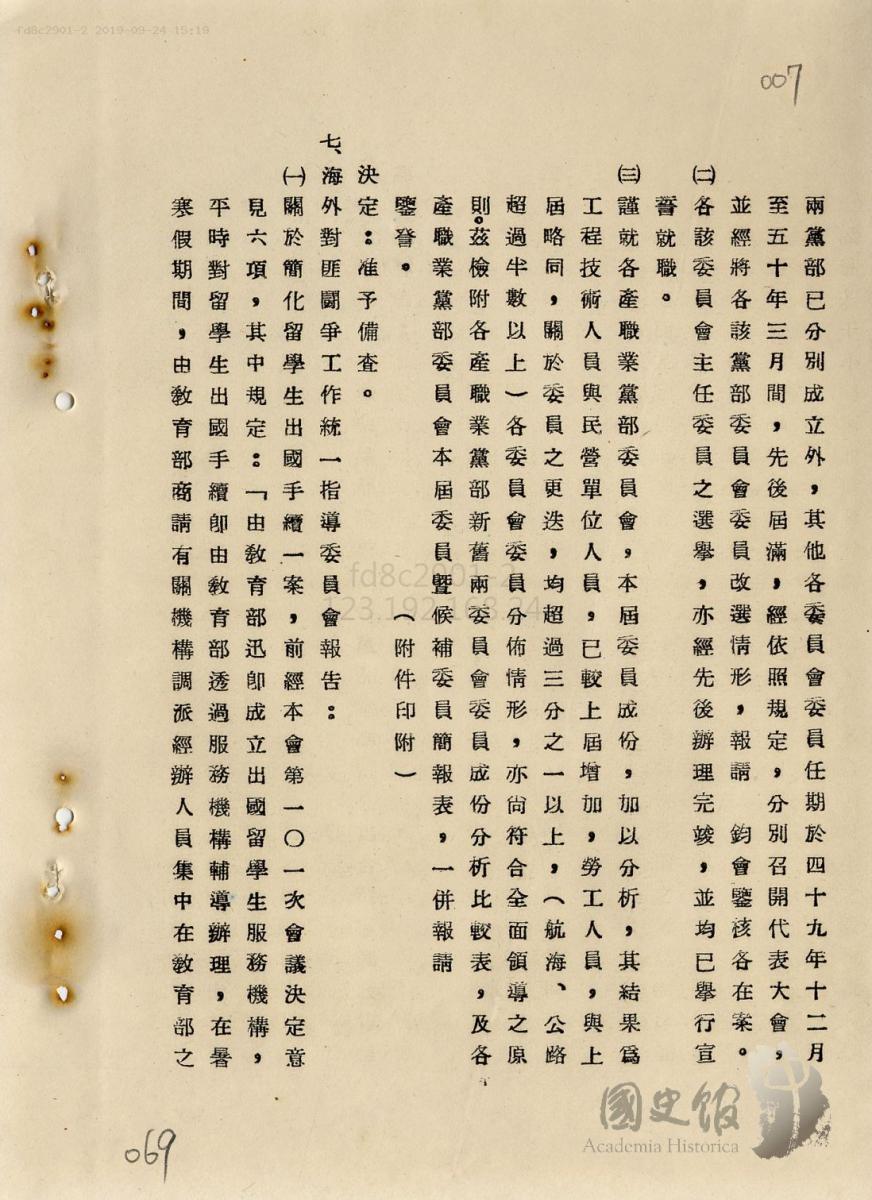 fd8c2901-2 2019-09-24 15:19
007
兩黨部已分別成立外，其他各委員會委員任期於四十九年十二月
至五十年三月間，先後屆滿，經依照規定，分別召開代表大會，
並經將各該黨部委員會委員改選情形，報請 鈞會鑒核各在案。
㈡各該委員會主任委員之選舉，亦經先後辦理完竣，並均已舉行宣
誓就職。
㈢謹就各產職業黨部委員會，本屆委員成份，加以分析，其結果為
工程技術人員與民營單位人員，已較上屆增加，勞工人員，與上
屆略同，關於委員之更迭，均超過三分之一以上，（航海、公路
超過半數以上）各委員會委員分佈情形，亦尚符合全面領導之原
則。茲檢附各產職業黨部新舊兩委員會委員成份分析比較表，及各
產職業黨部委員會本屆委員暨候補委員簡報表，一併報請
鑒詧。（附件印附）
決定：准予備查。
七、海外對匪鬪爭工作統一指導委員會報告：
㈠關於簡化留學生出國手續一案，前經本會第一〇一次會議決定意
見六項，其中規定：「由教育部迅卽成立出國留學生服務機構，
平時對留學生出國手續卽由教育部透過服務機構輔導辦理，在暑
寒假期間，由教育部商請有關機構調派經辦人員集中在教育部之
fd8c2901-2
國史館
Academia Historica
069